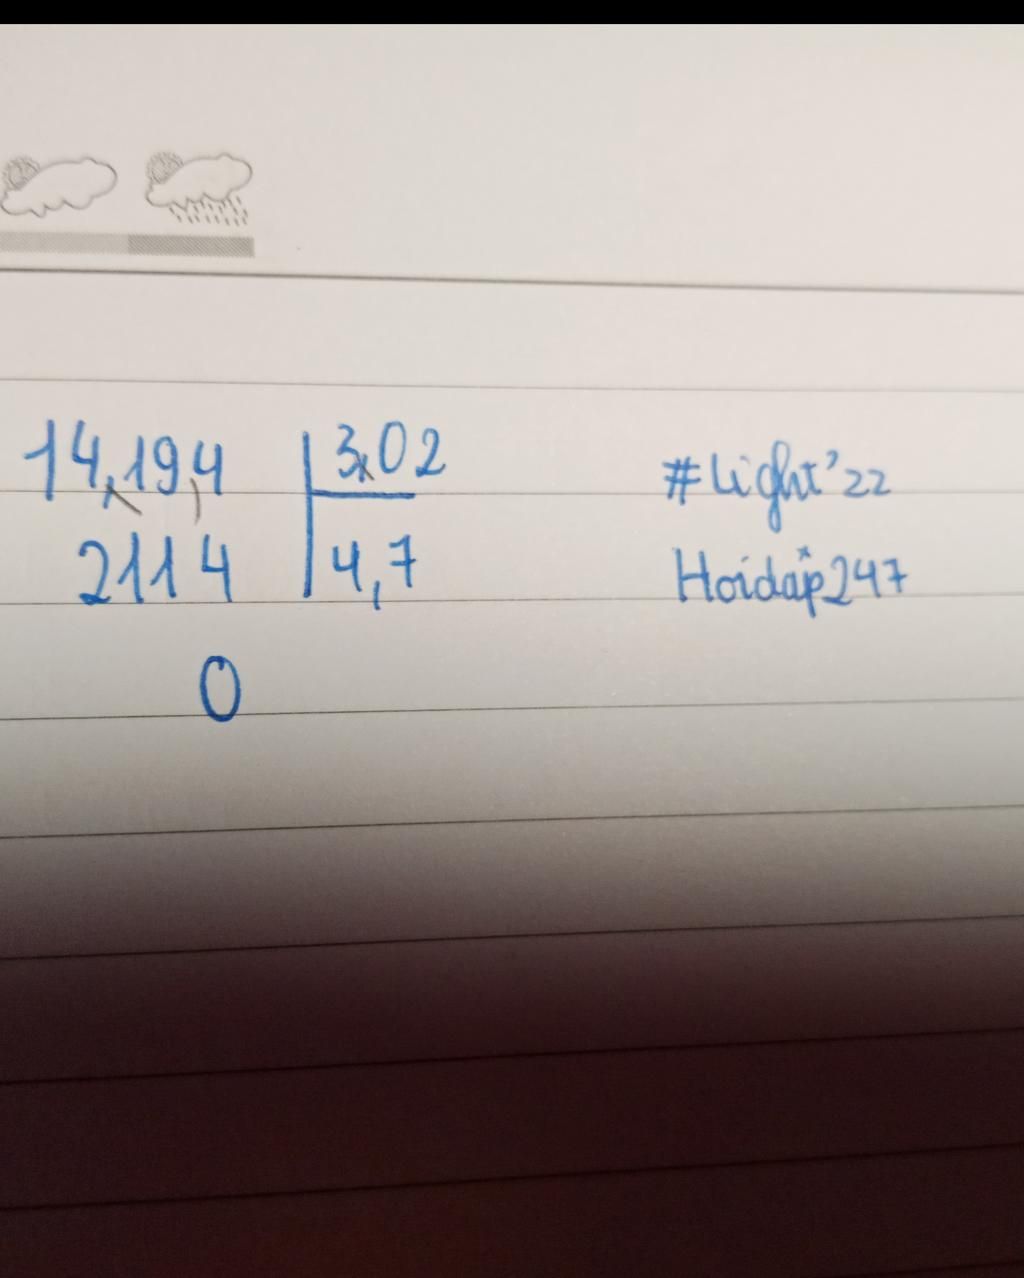 14,19,4 3,02
#Light'22
2114 4,7
Hoidap247
0